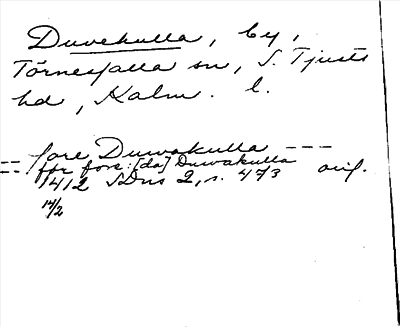 Duvekulla, by,
Törnesfalla sn, S. Tjusts
hd, Kalm. l.
-- fore Duwakulla ---
-- ffr fore: [da] Duwakulla
1412 SDns 2, s. 473 orig.
14/2